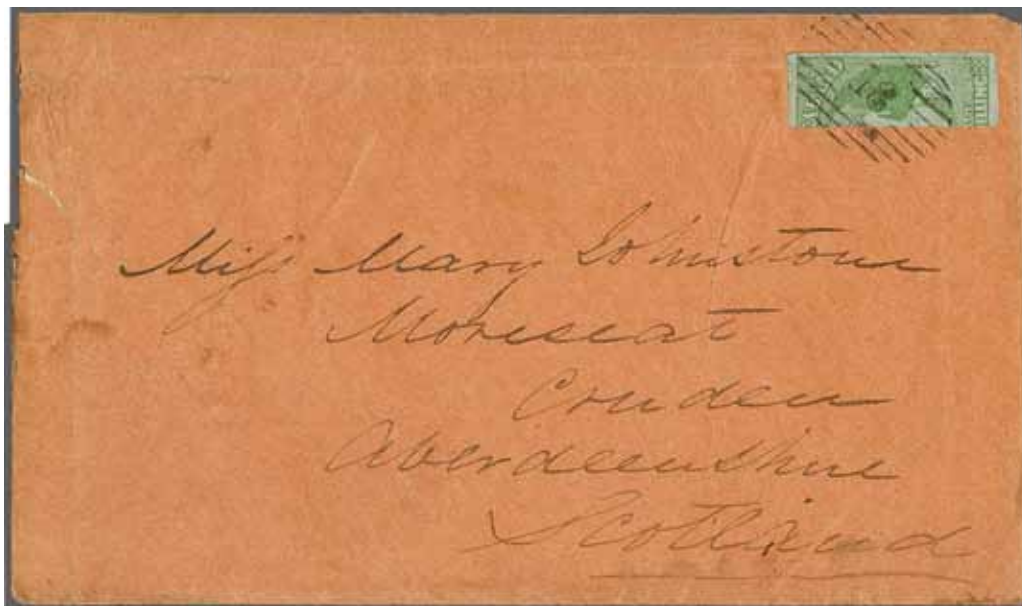 Miss Mary Johnstone
Moreseat
Cruden
Aberdeenshire
Scotland